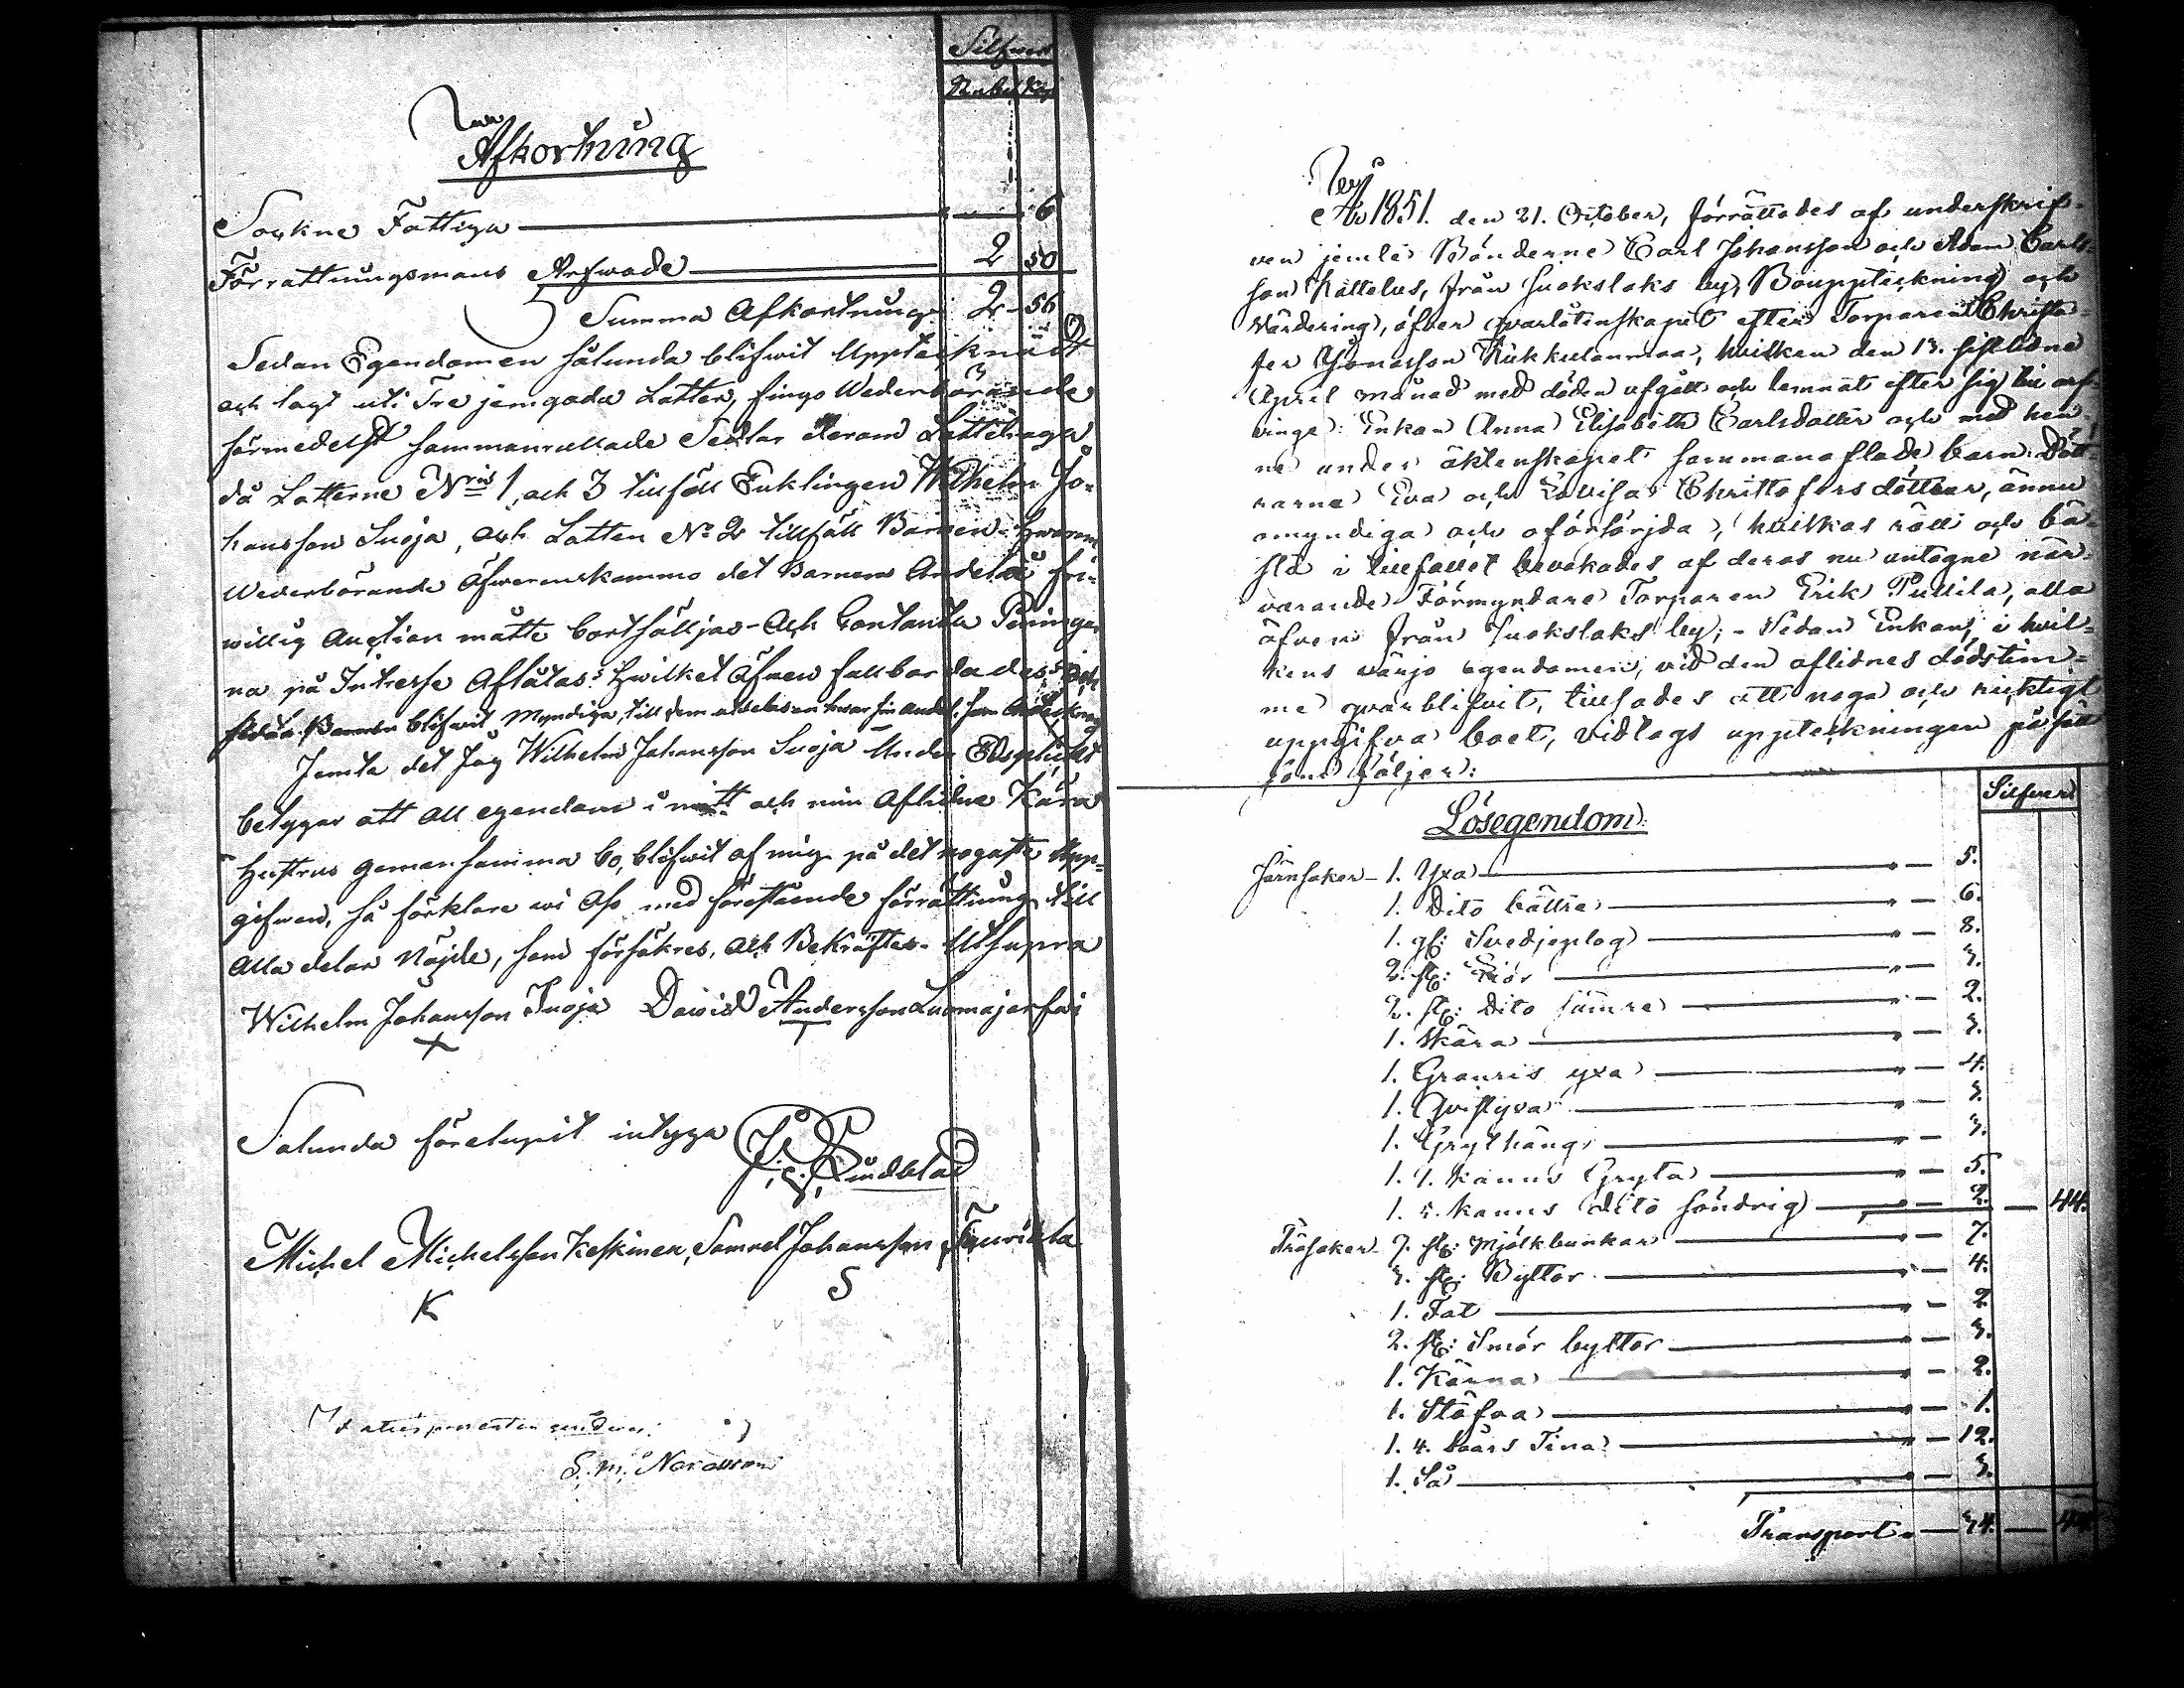 Silfwer
Rubel Kop
Afkortning
Sockne Fattiga — 6
Förrattningsmans Arfwode — 2 50
Summa Afkortning 2 56
Sedan Egendomen sålunda blifwit Upptecknadt
och lagt uti Tre jemgoda Lotter, fingo Wederbörande
förmedelst sammanrullade Sedlar derom Lottdraga
då Lotterne Nris 1, och 3 tillföll Enklingen Wilhelm Jo-
hansson Suoja, och Lotten No 2 tillföll Barnen.
Wederbörande öfwerenskommo det Barnens Andel å fri-
willig Auction måtte bortsälljas - Och Contanta Peningar-
na på Intresse Aflåtas: Hwilket äfwen
Barnen blifwit Myndiga, till dem utdelas en hwar sin andel.
Jemte det Jag Wilhelm Johansson Suoja Under Edsplickt
betygar att all egendom i mitt och min Aflidne Kära
Hustrus gemensamma bo, blifwit af mig på det nogaste Upp-
gifwen, så förklare wi Oss med förestående förrättning till
Alla delar Nöjde, som försäkres, och Bekräftes. Ut supra
Wilhelm Johansson Suoja Dawid Andersson Luomajarfwi
X T
Salunda förelupit intyga J. G. Lindblad
Michel Michelsson Keskinen, Samuel Johansson
K S
S. M.
År 1851. den 21. October, förrättades af underskrif-
ven jemte Bönderne Carl Johansson och Adam Carls-
son Rättolas, från Suokslaks by, Bouppteckning och
Värdering, öfver qvarlåtenskapet efter Torparen Christo-
fer Jonasson Kukkulanmaa, hvilken den 13. sistledne
April månad med döden afgått och lemnat efter sig till arf-
vinge: Enkan Anna Elisabeth Carlsdotter och med hen-
ne under äktenskapet sammanaflade barn: Dött-
rarna Eva och Lovisa Christofersdöttrar, ännu
omyndiga och oförsörjda, hvilkas rätt och bä-
sta i tillfället bevakades af deras nu antagne när-
varande Förmyndare Torparen Erik Pullila, alla
äfven från Suokslaks by; - Sedan Enkan, i hvil-
kens värjo egendomen, vid den aflidnes dödstim-
me qvarblifvit, tillsades att noga och ricktigt
uppgifva boet, vidtogs uppteckningen på sätt
som följer:
Silfver
Lösegendom
Järnsaker - 1. Yxa — 5.
1. Dito bättre — 6.
1. gl: Svedjeplog — 8.
2. st: — 3.
2. st: Dito sämre — 2.
1. Skära — 3.
1. Granris yxa — 4.
1. — 3.
1. Grythäng — 3.
1. 7. kanns Gryta — 5.
1. 5. kanns dito söndrig — 2. — 44.
Träsaker 7. st: Mjölkbunkar — 7.
3. st: Byttor — 4.
1. Fat — 2
2. st: Smör byttor — 3.
1. Kärna — 2.
1. Stäfva — 1.
1. 4. såars Tina — 12.
1. Så — 3.
Transport — 34. — 44